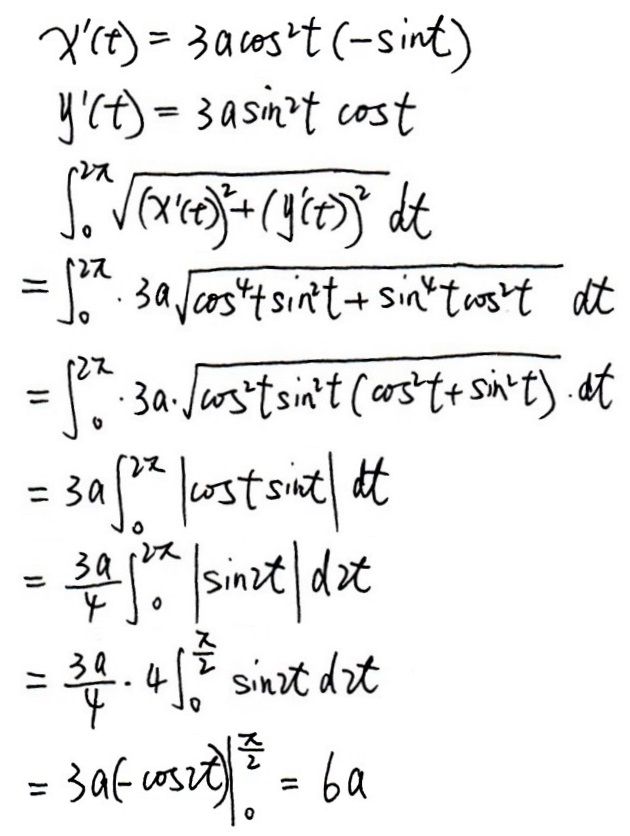 x'(t) = 3a cos²t (-sint)
y'(t) = 3a sin²t cost
∫₀^{2π} √((x'(t))² + (y'(t))²) dt
= ∫₀^{2π} · 3a √(cos⁴t sin²t + sin⁴t cos²t) dt
= ∫₀^{2π} · 3a · √(cos²t sin²t (cos²t + sin²t)) · dt
= 3a ∫₀^{2π} |cost sint| dt
= 3a/4 ∫₀^{2π} |sin2t| d2t
= 3a/4 · 4 ∫₀^{π/2} sin2t d2t
= 3a(-cos2t)|₀^{π/2} = 6a